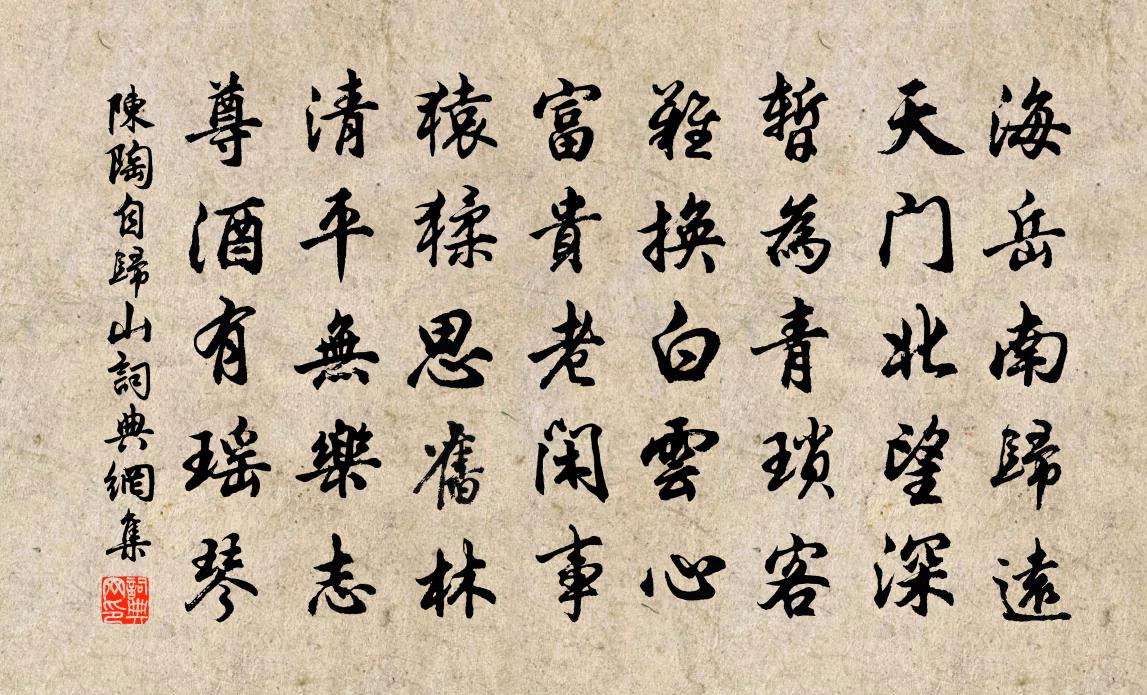 海岳南歸遠
天门北望深
暫為青瑣客
難換白雲心
富貴老閑事
猿猱思舊林
清平無樂志
尊酒有瑶琴
陳陶自歸山詞典網集
詞典网印